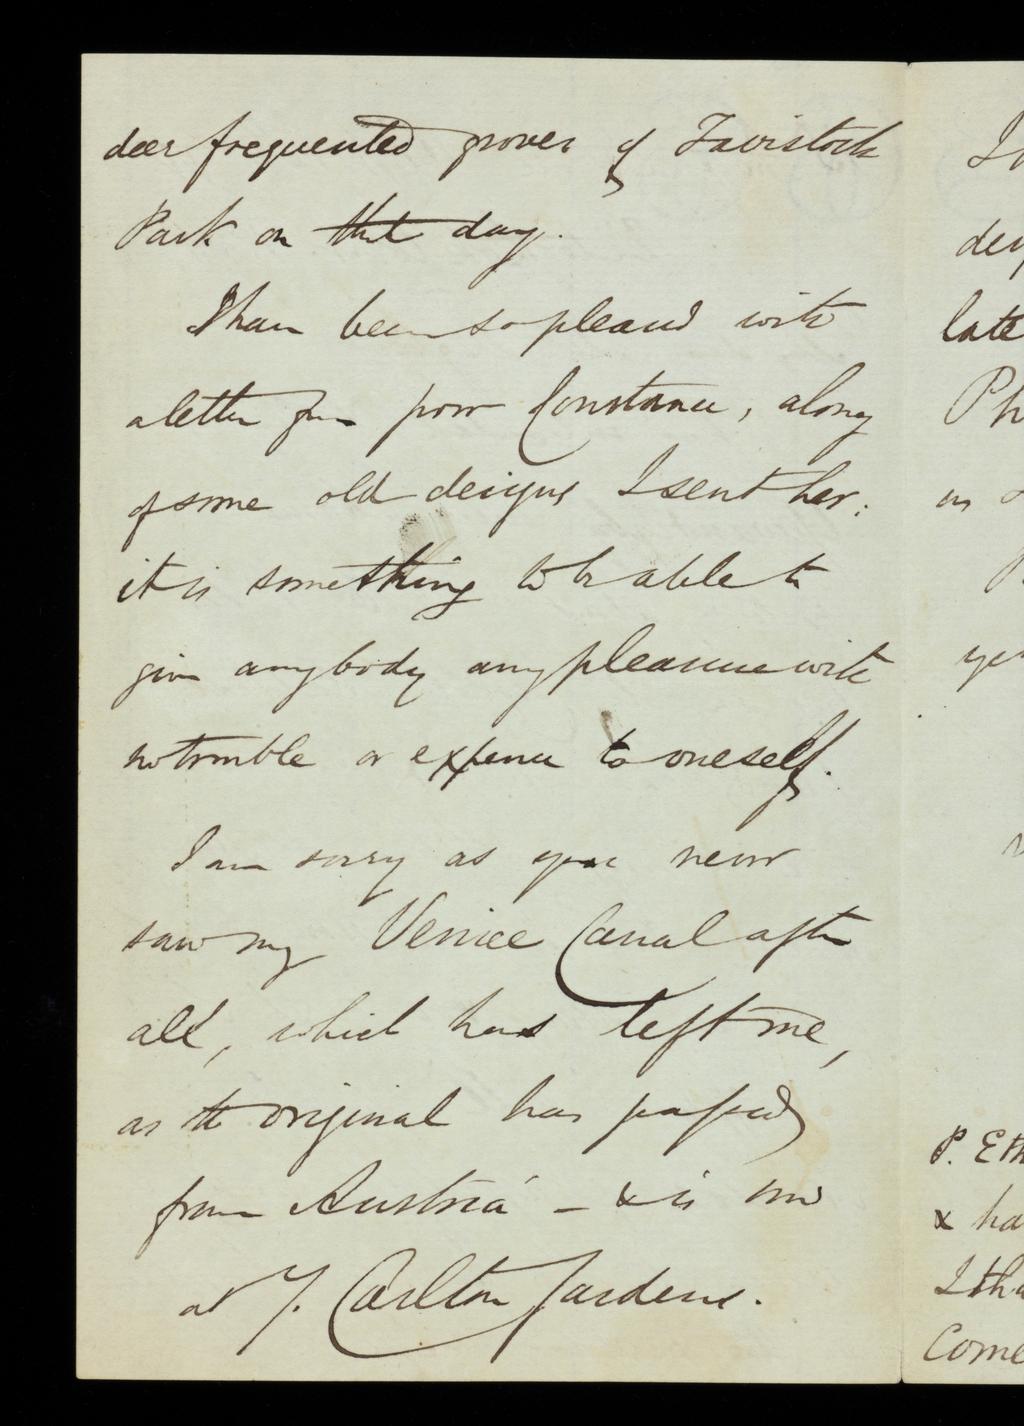 deer frequented groves of Tavistock
Park on that day.
I have been so pleased with
a letter from poor Constance, along
of some old designs I sent her:
it is something to be able to
give anybody any pleasure with
no trouble or expense to oneself.
I am sorry as you never
saw my Venice Canal after
all, which has left me,
as the original has passed
from Austria - & is now
at 7. Carlton Gardens.
late
Ph
P. Eth
x ha
I tha
Come